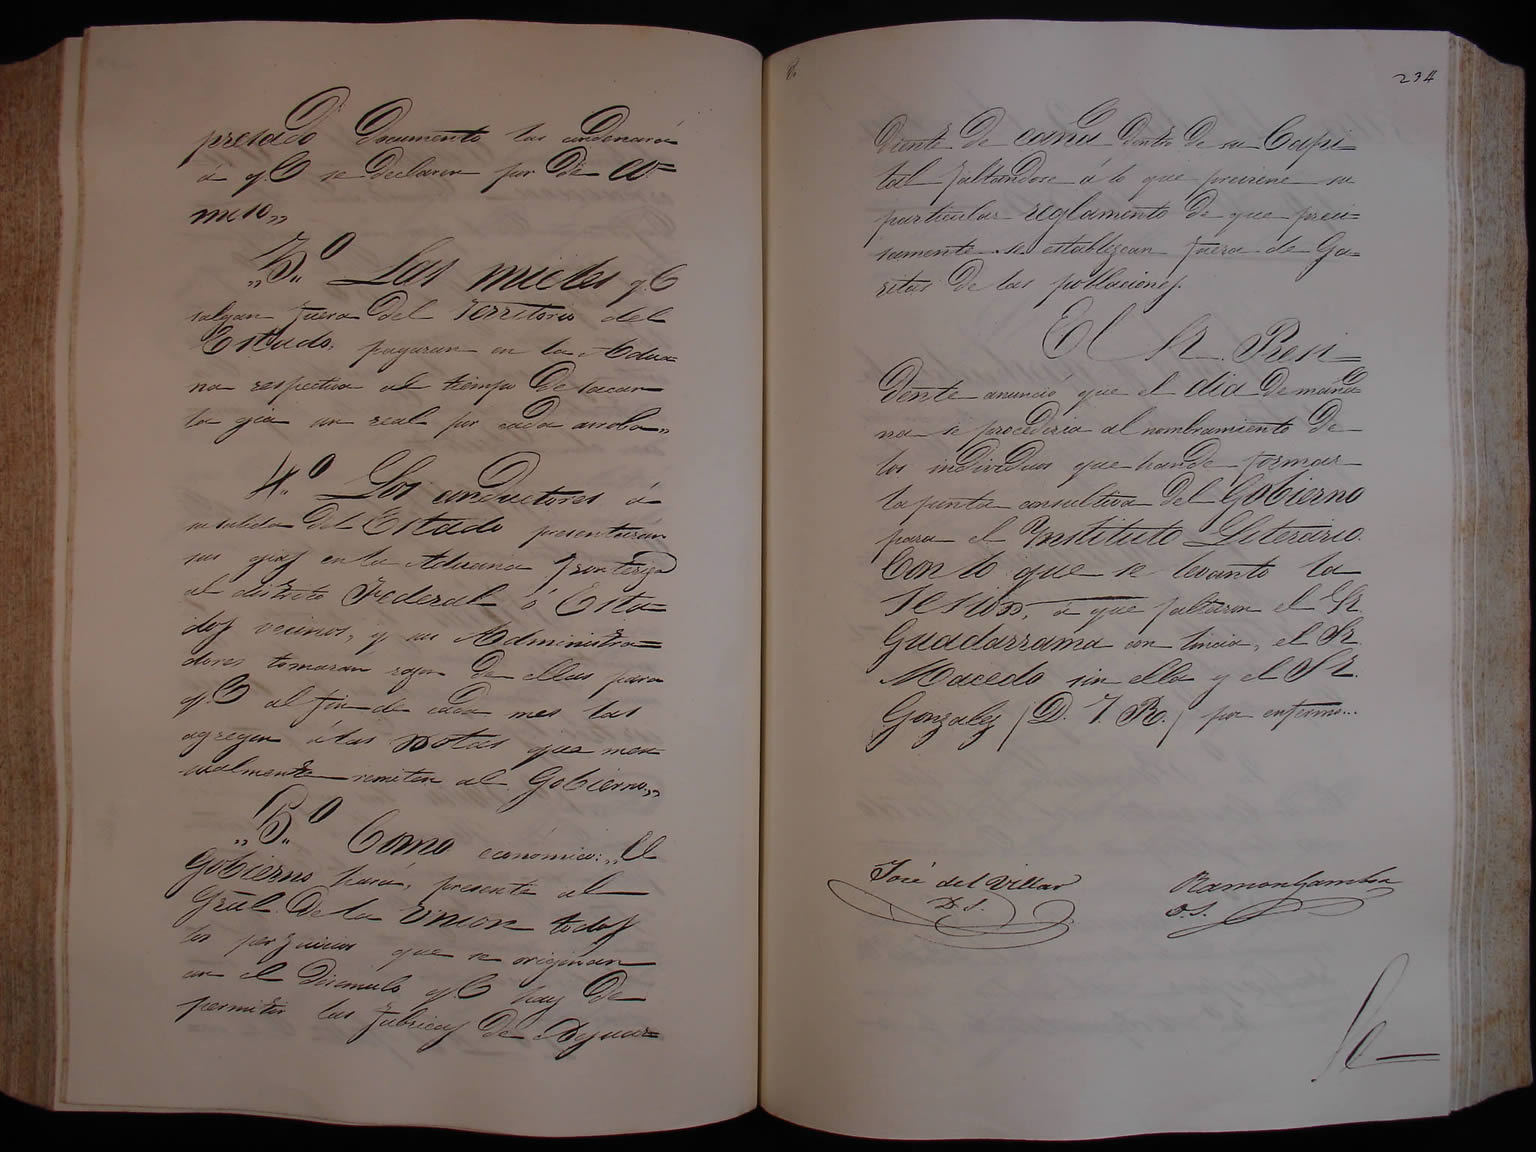 presado Documento las condenará
á q.e se declaren por de co=
miso,,
,,3.º Las mieles q.e
salgan fuera del Territorio del
Estado, pagaran en la Adua
na respectiva al tiempo de sacar
la guia un real por cada arroba,,
4.º Los conductores á
su salida del Estado presentarán
sus guias en la Aduana fronteriza
al distrito Federal ó Esta=
dos vecinos, y sus Administra=
dores tomaran razon de ellas para
q.e al fin de cada mes las
agregen á las notas que men
sualmente remiten al Gobierno,,
,,5.º Como económico: ,,El
Gobierno hará presente al
Gral. de la Union todos
los perjuicios que se originan
en el Disimulo q.e hay de
permitir las fabricas de Aguar=
234
diente de caña dentro de su Capi=
tal faltandose á lo que previene su
particular reglamento de que preci=
samente se establezcan fuera de Ga=
ritas de las poblaciones.
El Sr. Presi=
dente anunció que el dia de maña
na se procederia al nombramiento de
los individuos que han de formar
la junta consultiva del Gobierno
para el Instituto Literario.
Con lo que se levanto la
Sesion, á que faltaron el Sr.
Guadarrama con licencia, el Sr.
Macedo sin ella y el Sr.
Gonzalez (D. J. R.) por enfermo...
José del Villar
D. S.
Ramon Gamboa
D. S.
Se